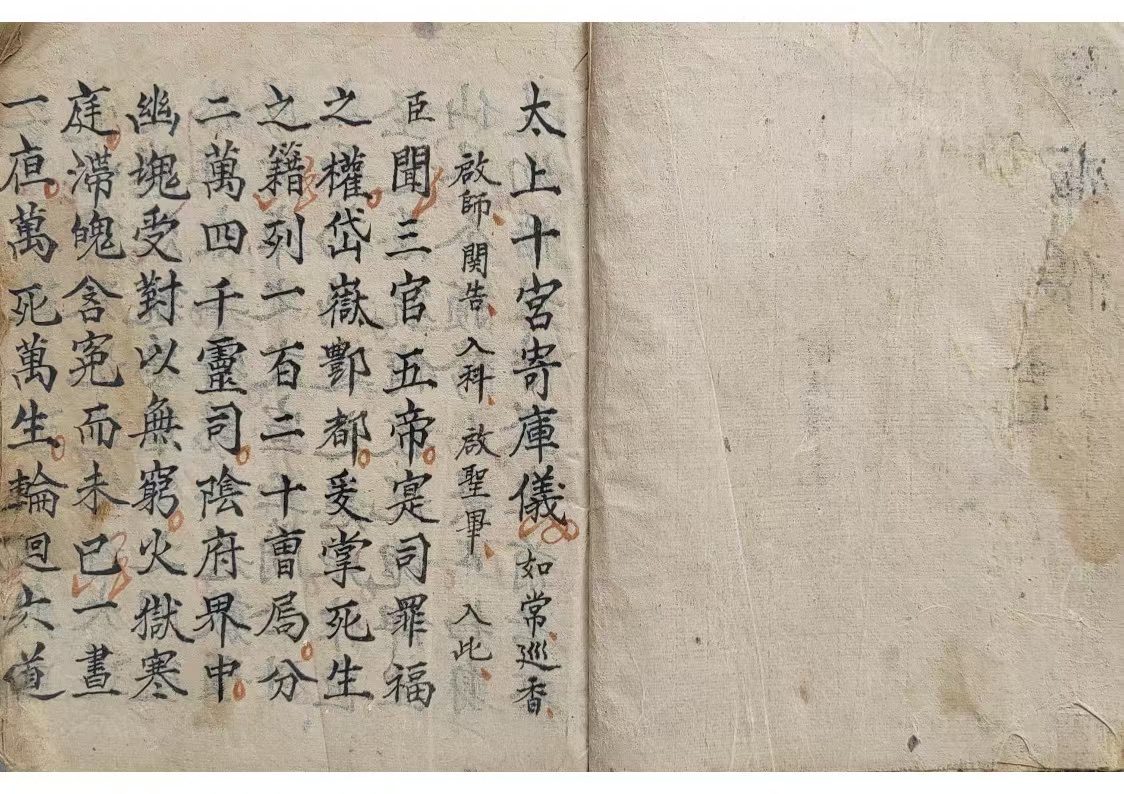 太上十宮寄庫儀 如常巡香
啟師關告入科啟聖畢 入此
臣聞三官五帝寔司罪福
之權岱嶽酆都爰掌死生
之籍列一百二十曹局分
二萬四千靈司陰府界中
幽塊受對以無窮火獄寒
庭滯魄含冤而未已一晝
一夜萬死萬生輪迴六道